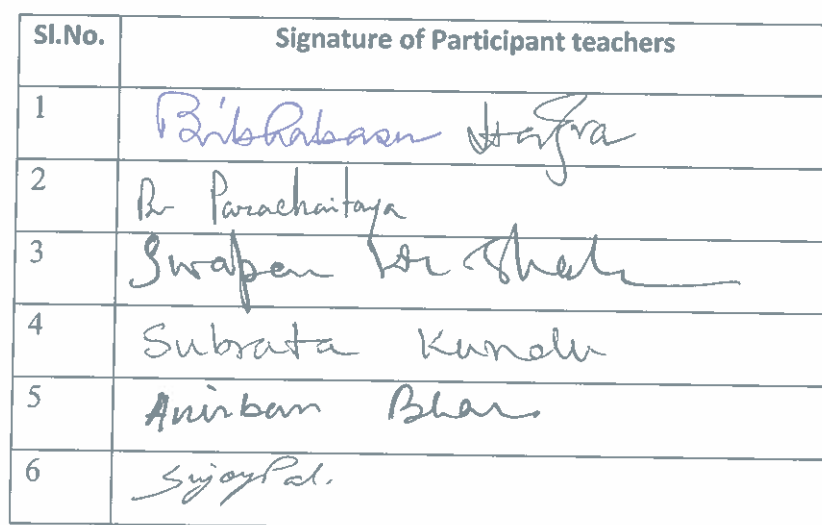 Sl.No. Signature of Participant teachers
1 Bibhabasu Hazra
2 Br Parachaitaya
3 Swapan Kr Shah
4 Subrata Kundu
5 Anirban Bhar
6 Sujoy Pal.